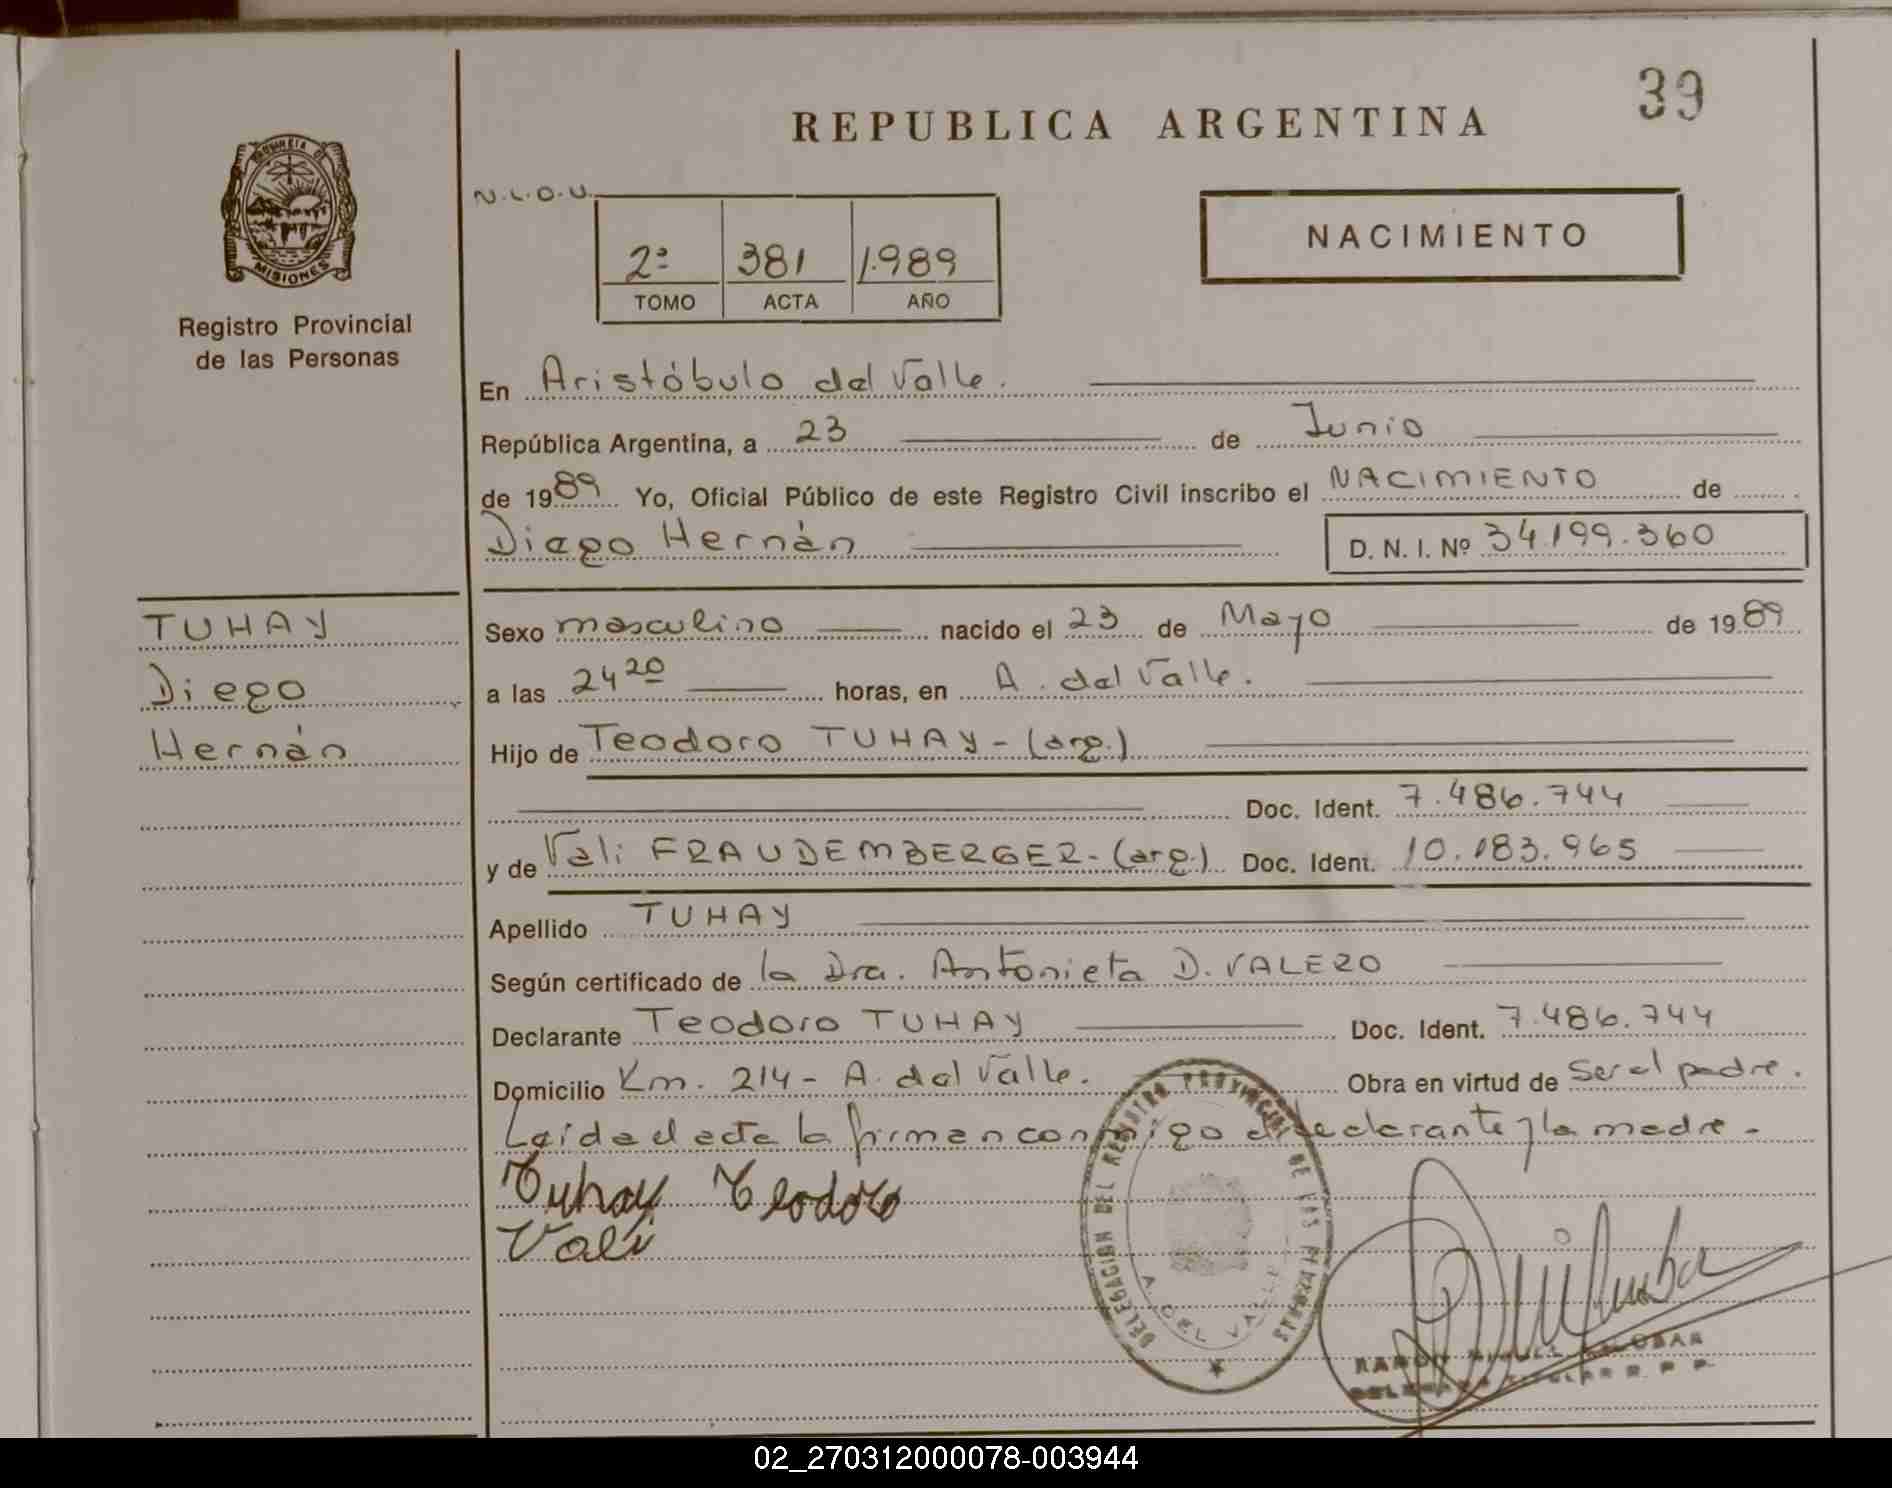 39
REPUBLICA ARGENTINA
PROVINCIA DE
MISIONES
Registro Provincial
de las Personas
N.L.O.U.
2ª 381 1.989
TOMO ACTA AÑO
NACIMIENTO
En Aristóbulo del Valle.
República Argentina, a 23 de Junio
de 1989 Yo, Oficial Público de este Registro Civil inscribo el NACIMIENTO de
Diego Hernán D. N. I. Nº 34.199.360
TUHAY
Diego
Hernán
Sexo masculino nacido el 23 de Mayo de 1989
a las 24 20 horas, en A. del Valle.
Hijo de Teodoro TUHAY - (arg.)
Doc. Ident. 7.486.744
y de Vali FRAUDEMBERGER - (arg.) Doc. Ident. 10.183.965
Apellido TUHAY
Según certificado de la Dra. Antonieta D. VALERO
Declarante Teodoro TUHAY Doc. Ident. 7.486.744
Domicilio Km. 214 - A. del Valle. Obra en virtud de Ser el padre.
Leída el acta la firman conmigo el declarante y la madre -
Tuhay Teodoro
Vali
DELEGACION DEL REGISTRO PROVINCIAL DE LAS PERSONAS
A. DEL VALLE
02_270312000078-003944